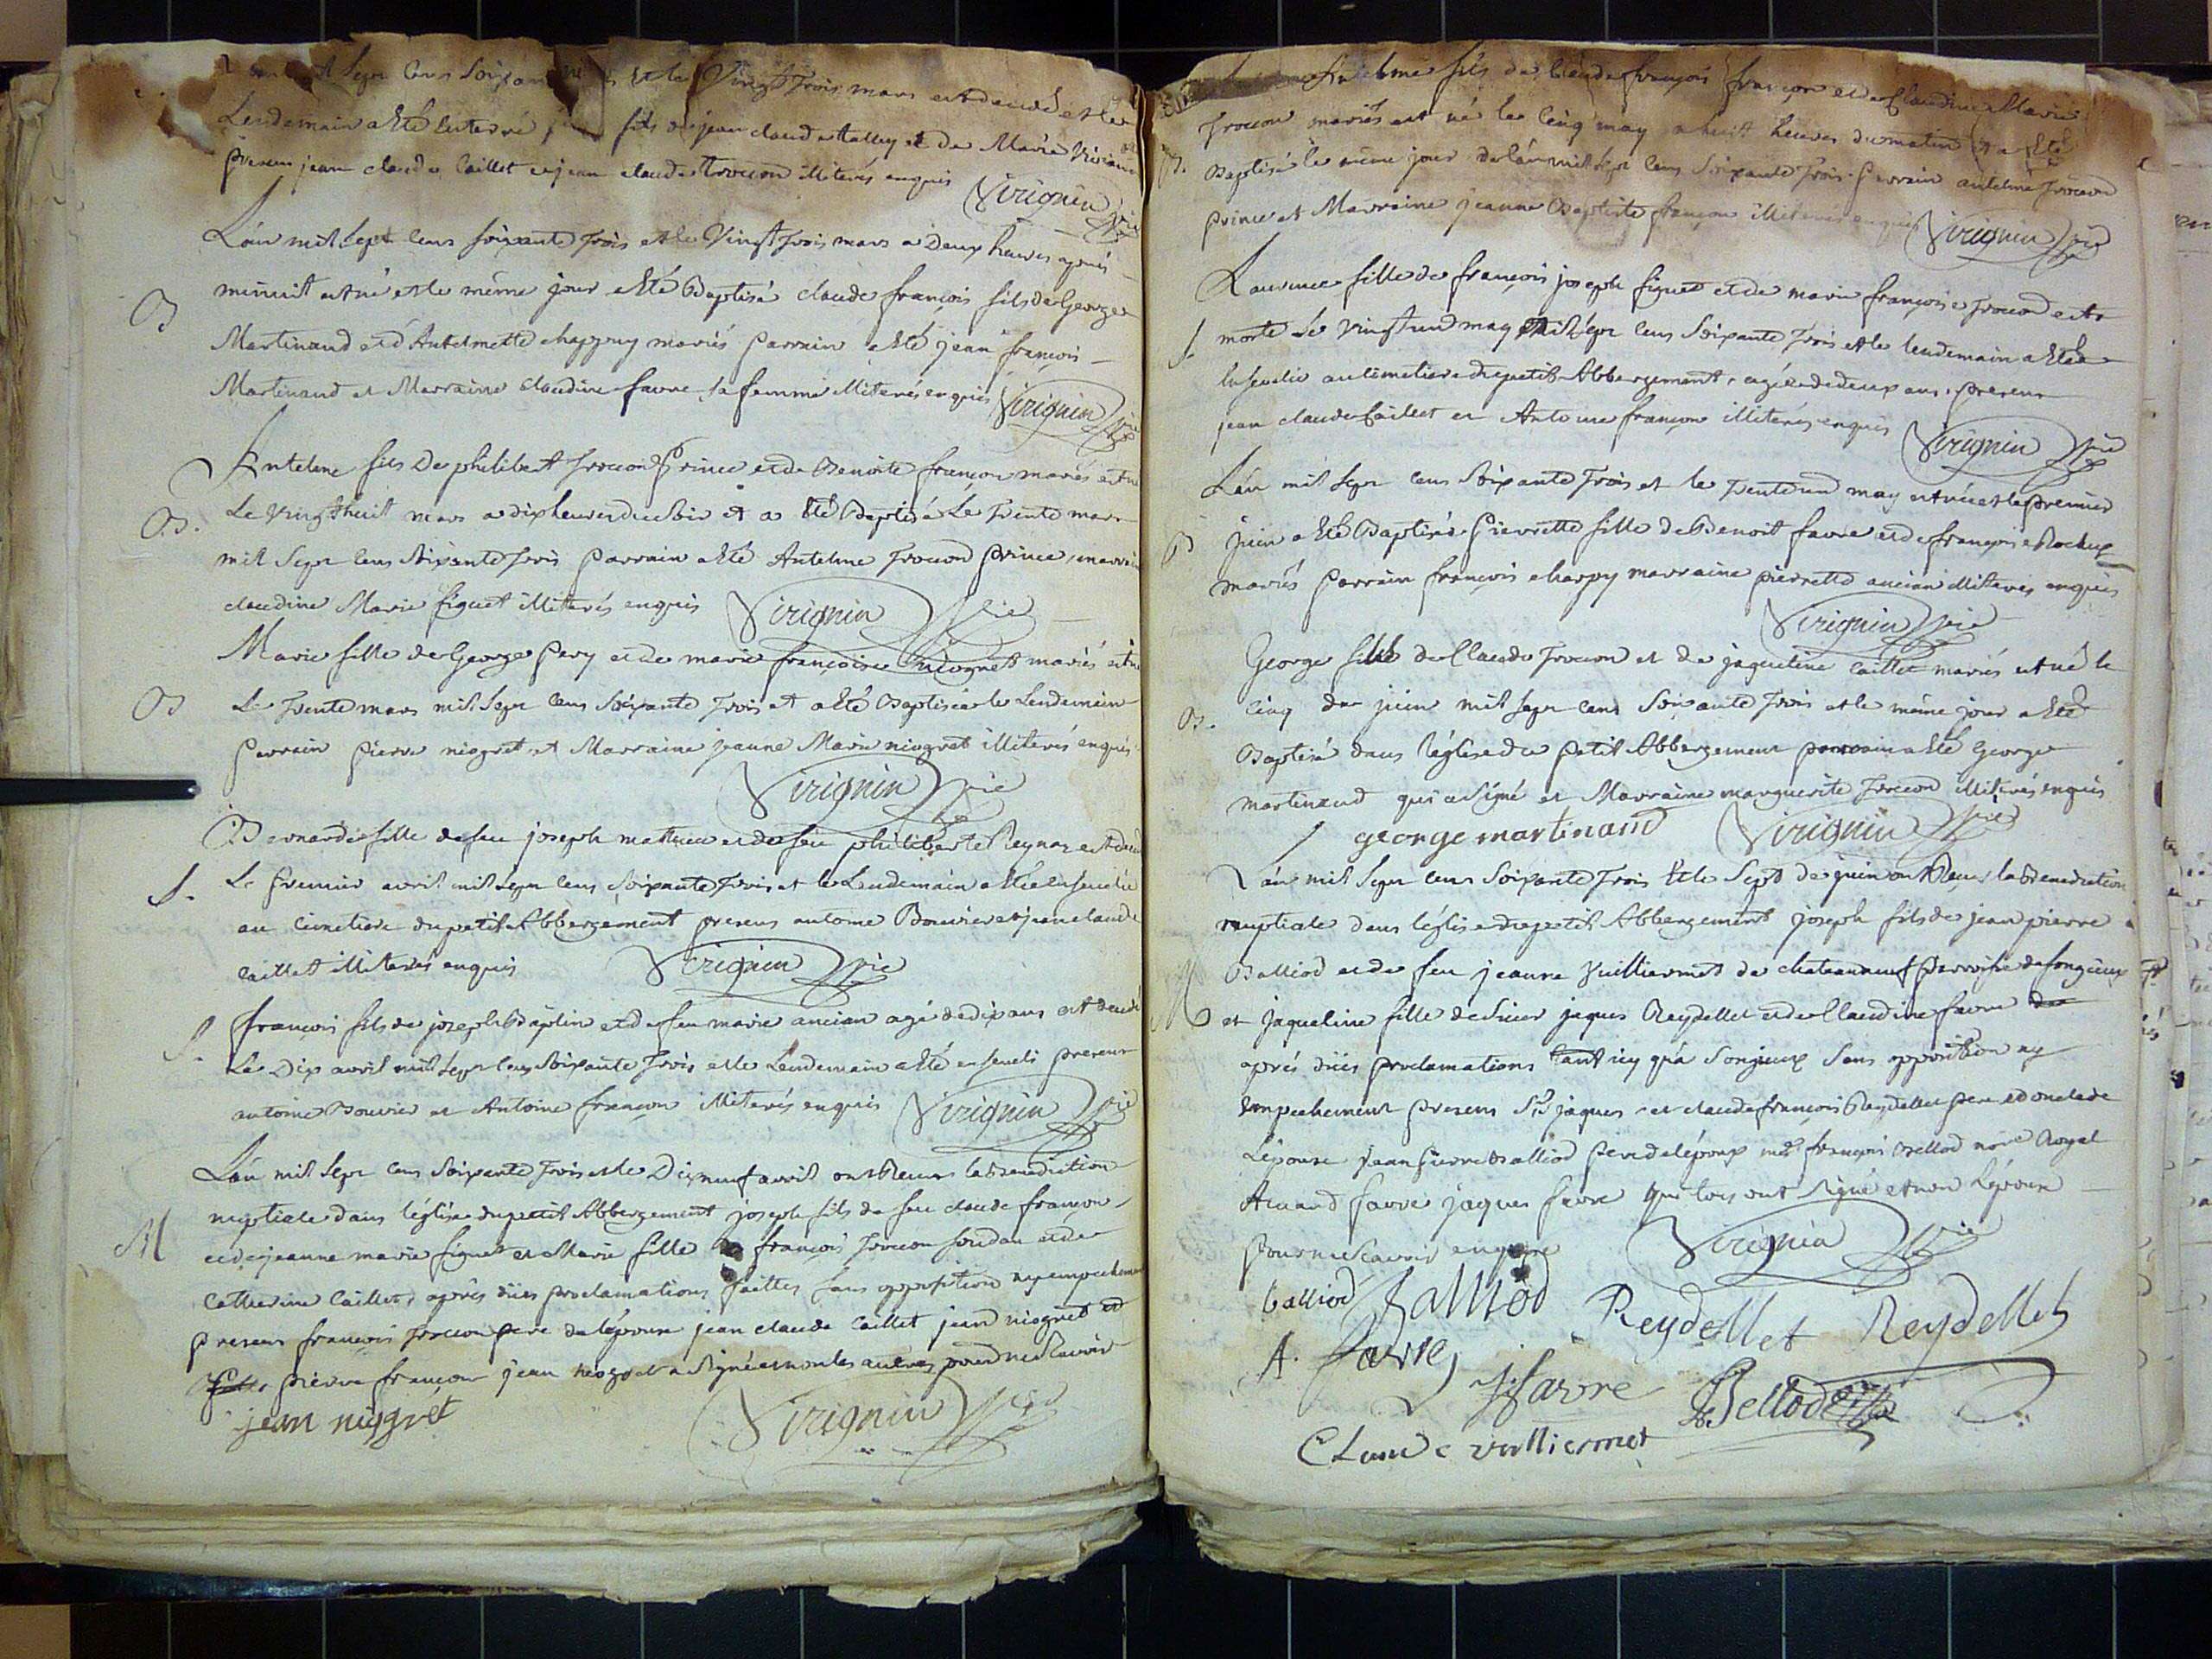 sept cens soixante et le Vingt Trois mars est decedé et le
Lendemain a Eté Enterré fils de jean claude et de Marie
presens jean claude Caillet et jean claude Troccon illiterés enquis
Virignin Vic
L'an mil sept cens soixante Trois et le Vingt Trois mars a Deux heures après
minuit est né et le même jour a Eté Baptisé claude françois fils de George
B
Martinand et d'Antelmette chappuy mariés parrain a Eté jean françois
Martinand et Marraine claudine favre sa femme illiterés enquis
Virignin Vic
Antelme fils De philibert Troccon Prince et de Benoite françon mariés est né
B.
Le vingt huit mars a dix heures du soir et a Eté Baptisé Le Trente mars
mil sept cens soixante Trois parrain a Eté Antelme Troccon prince, marraine
claudine Marie figuet illiterés enquis
Virignin Vic
Marie fille de George pery et de marie françoise niogret mariés est né
B
Le Trente mars mil sept cens soixante Trois et a Eté Baptisée le Lendemain
parrain pierre niogret et Marraine jeanne Marie niogret illiterés enquis
Virignin Vic
Bernarde fille de feu joseph mathieu et de feu philiberte Reynaz est
S.
Le premier avril mil sept cens soixante Trois et le Lendemain a Eté ensevelie
au cimetiere du petit Abbergement presens antoine Bouvier et jean claude
Caillet illiterés enquis
Virignin Vic
françois fils de joseph et de feu marie ancian agé de dix ans est decedé
S.
Le Dix avril mil sept cens soixante Trois et le Lendemain a Eté enseveli presens
antoine Bouvier et Antoine françon illiterés enquis
Virignin Vic
L'an mil sept cens soixante Trois et le Dix neuf avril ont Recus la Benediction
nuptiale dans l'église du petit Abbergement joseph fils de feu claude françon
M
et de jeanne marie figuet et Marie fille de françois Troccon et de
Catherine Caillet, après dües proclamations faittes sans opposition ny empechement
presens françois Troccon pere de l'épouse jean claude Caillet jean niogret et
pierre françon jean niogret a signé et non les autres pour ne sçavoir
jean niogret
Virignin Vic
Antelme fils de Claude françois françon et de Claudine Marie
Troccon mariés est né le Cinq may a huit heures du matin et a Eté
B.
Baptisé le même jour de l'an mil sept cens soixante Trois parrain antelme Troccon
prince et Marraine jeanne Baptiste françon illiterés enquis
Virignin Vic
Laurence fille de françois joseph figuet et de marie françoise Troccon est
S.
morte Le vingt un may mil sept cens soixante Trois et le lendemain a Eté
Ensevelie au cimetiere du petit Abbergement, agée de deux ans, presens
jean claude Caillet et Antoine françon illiterés enquis
Virignin Vic
L'an mil sept cens soixante Trois et le Trente un may est née et le premier
B
juin a Eté Baptisée Pierrette fille de Benoit favre et de françoise
mariés parrain françois charpy marraine pierrette ancian illiterés enquis
Virignin Vic
George fils de Claude Troccon et de jaqueline Caillet mariés est né le
B.
Cinq de juin mil sept cens soixante Trois et le même jour a Eté
Baptisé dans l'église du petit Abbergement parrain a Eté George
martinand qui a signé et Marraine marguerite Troccon illiterés enquis
george martinand
Virignin Vic
L'an mil sept cens soixante Trois et le Sept de juin ont Recus la Benediction
nuptiale dans l'église du petit Abbergement joseph fils de jean pierre
Balliod et de feu jeanne Vuilliermet de chateauneuf parroisse de songieux
M
et jaqueline fille de Sieur jaques Reydellet et de Claudine favre
après düës proclamations tant icy qu'a Songieux sans opposition ny
Empechement presens Sr jaques et claude françois Reydellet pere et oncle de
L'épouse jean pierre Balliod pere de l'époux me françois Bellod nore Royal
favre jaques favre qui tous ont signé et non l'épouse
pour ne sçavoir enquise
Virignin Vic
balliod Balliod Reydellet Reydellet
A. favre
J favre Bellod
Claude vuilliermet